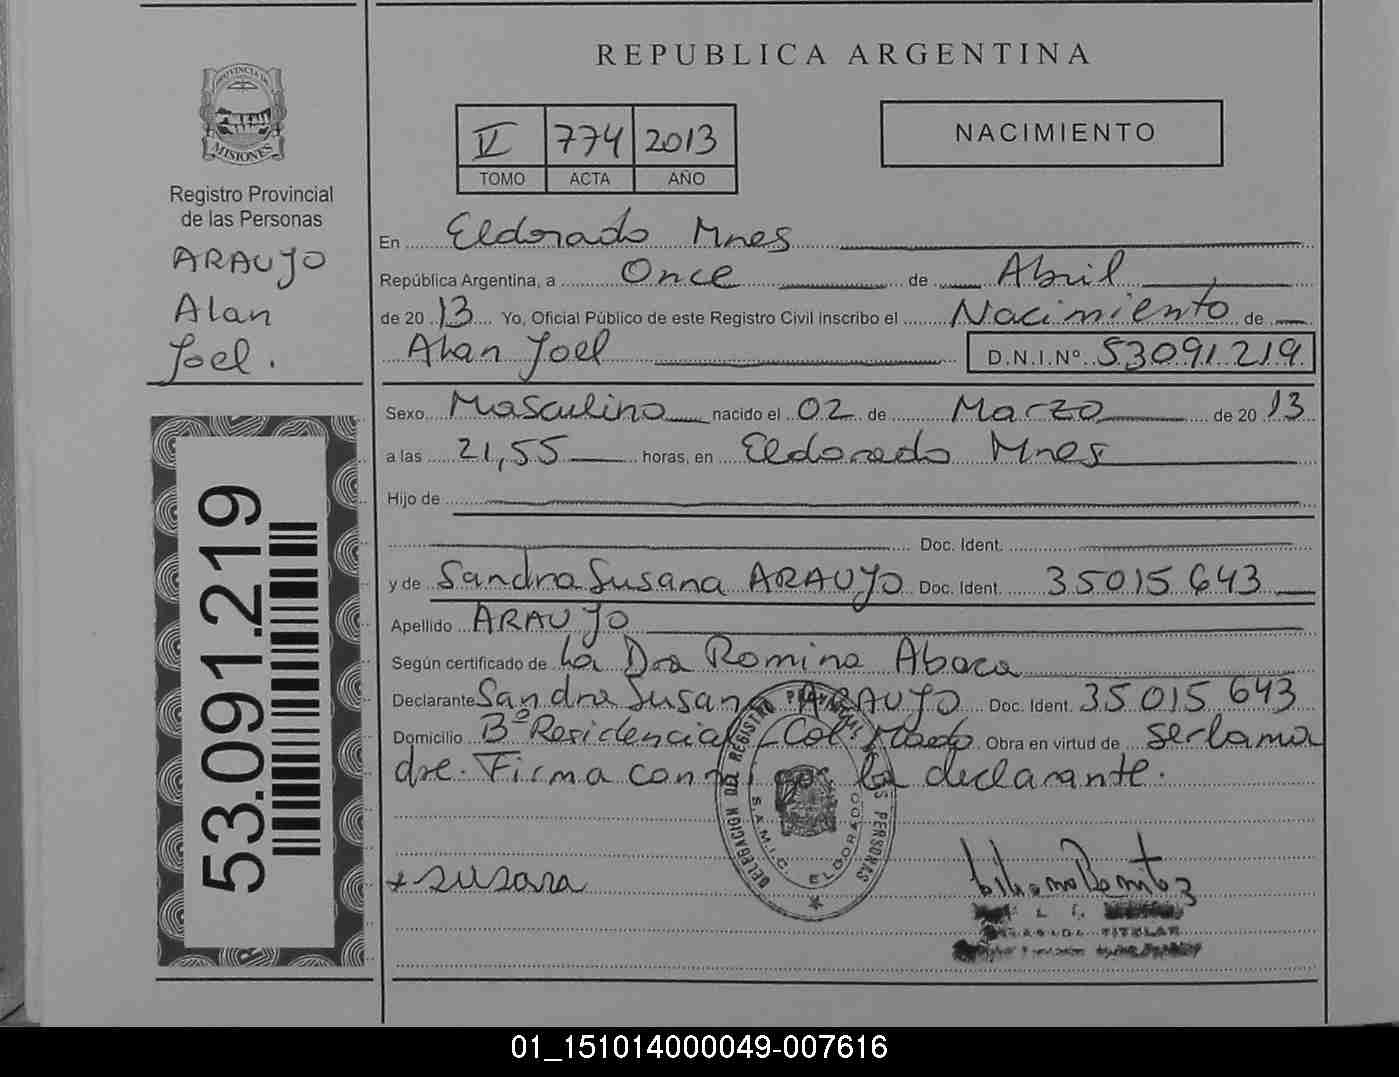 REPUBLICA ARGENTINA
PROVINCIA DE
MISIONES
Registro Provincial
de las Personas
ARAUJO
Alan
Joel.
53.091.219
V 774 2013
TOMO ACTA AÑO
NACIMIENTO
En Eldorado Mnes
República Argentina, a Once de Abril
de 2013 Yo, Oficial Público de este Registro Civil inscribo el Nacimiento de
Alan Joel D.N.I.Nº 53091219
Sexo Masculino nacido el 02 de Marzo de 2013
a las 21,55 horas, en Eldorado Mnes
Hijo de
Doc. Ident.
y de Sandra Susana ARAUJO Doc. Ident. 35015643
Apellido ARAUJO
Según certificado de La Dra Romina Abaca
Declarante Sandra Susana ARAUJO Doc. Ident. 35015643
Domicilio Bº Residencial - Col Mado Obra en virtud de ser la ma
dre. Firma conmigo la declarante.
DELEGACION DEL REGISTRO PROVINCIAL DE LAS PERSONAS
S.A.M.I.C. ELDORADO
x susana
Benitez
TITULAR
01_151014000049-007616